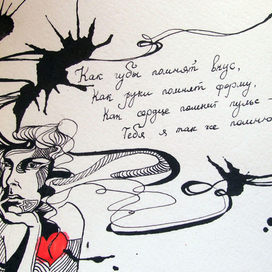 Как губы помнят вкус,
Как руки помнят форму,
Как сердце помнит пульс -
Тебя я так же помню